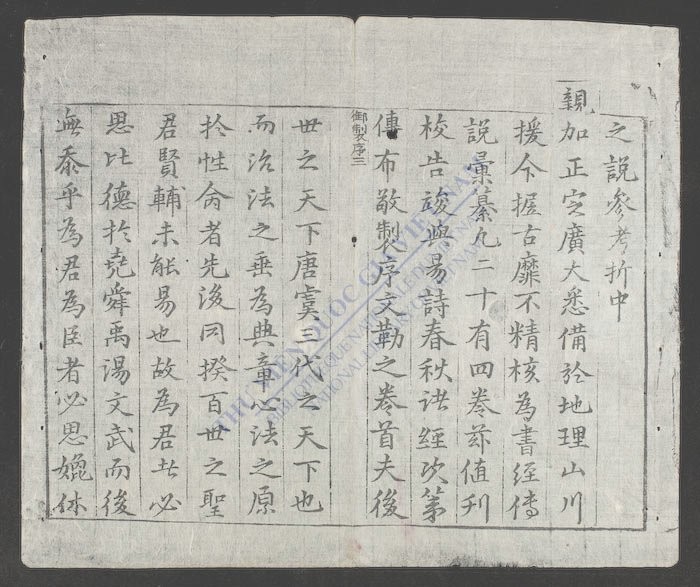 之說參考折中
親加正定廣大悉備於地理山川
援今握古靡不精核為書經傳
說彚纂凡二十有四卷茲值刋
校告竣與易詩春秋諸經次第
傳布敬製序文勒之卷首夫後
御製序三
丗之天下唐虞三代之天下也
而治法之垂為典章心法之原
扵性命者先後同揆百丗之聖
君賢輔未能易也故為君者必
思比德扵堯舜禹湯文武而後
無忝乎為君為臣者必思媲休
THƯ VIỆN QUỐC GIA VIỆT NAM
BIBLIOTHEQUE NATIONALE DU VIETNAM
NATIONAL LIBRARY OF VIETNAM